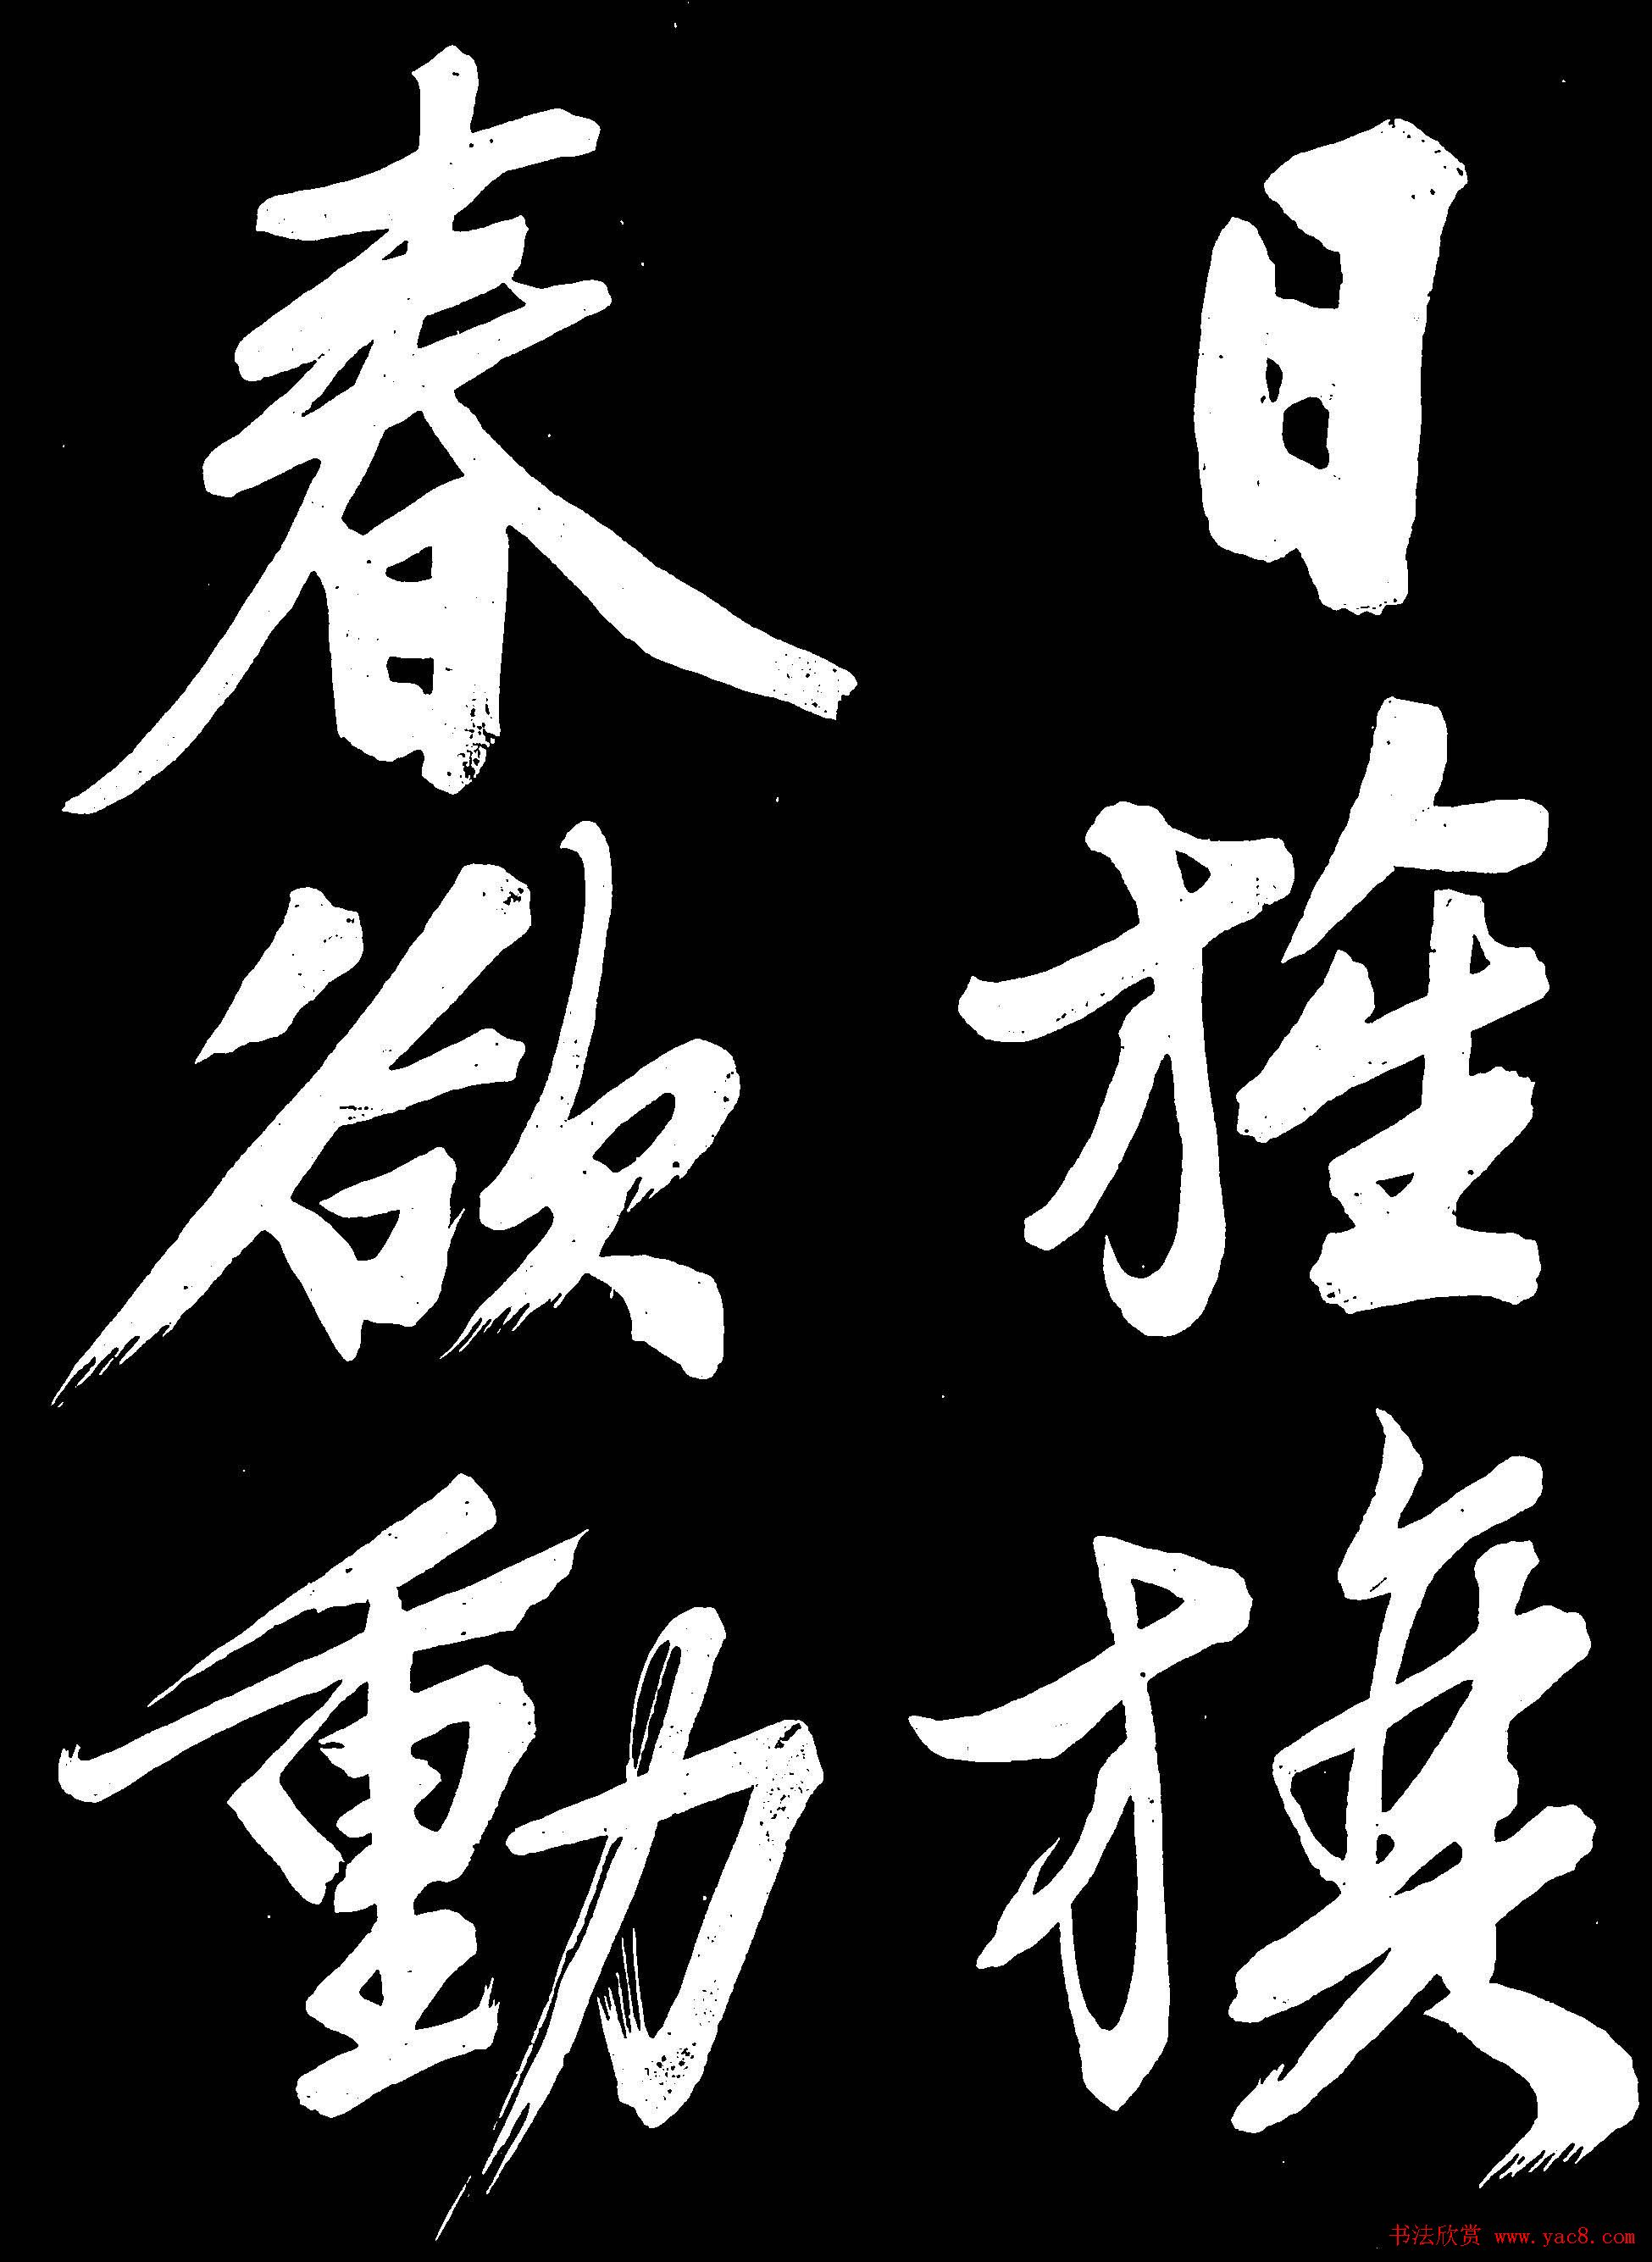 日旌旗
春欲動
书法欣赏 www.yac8.com